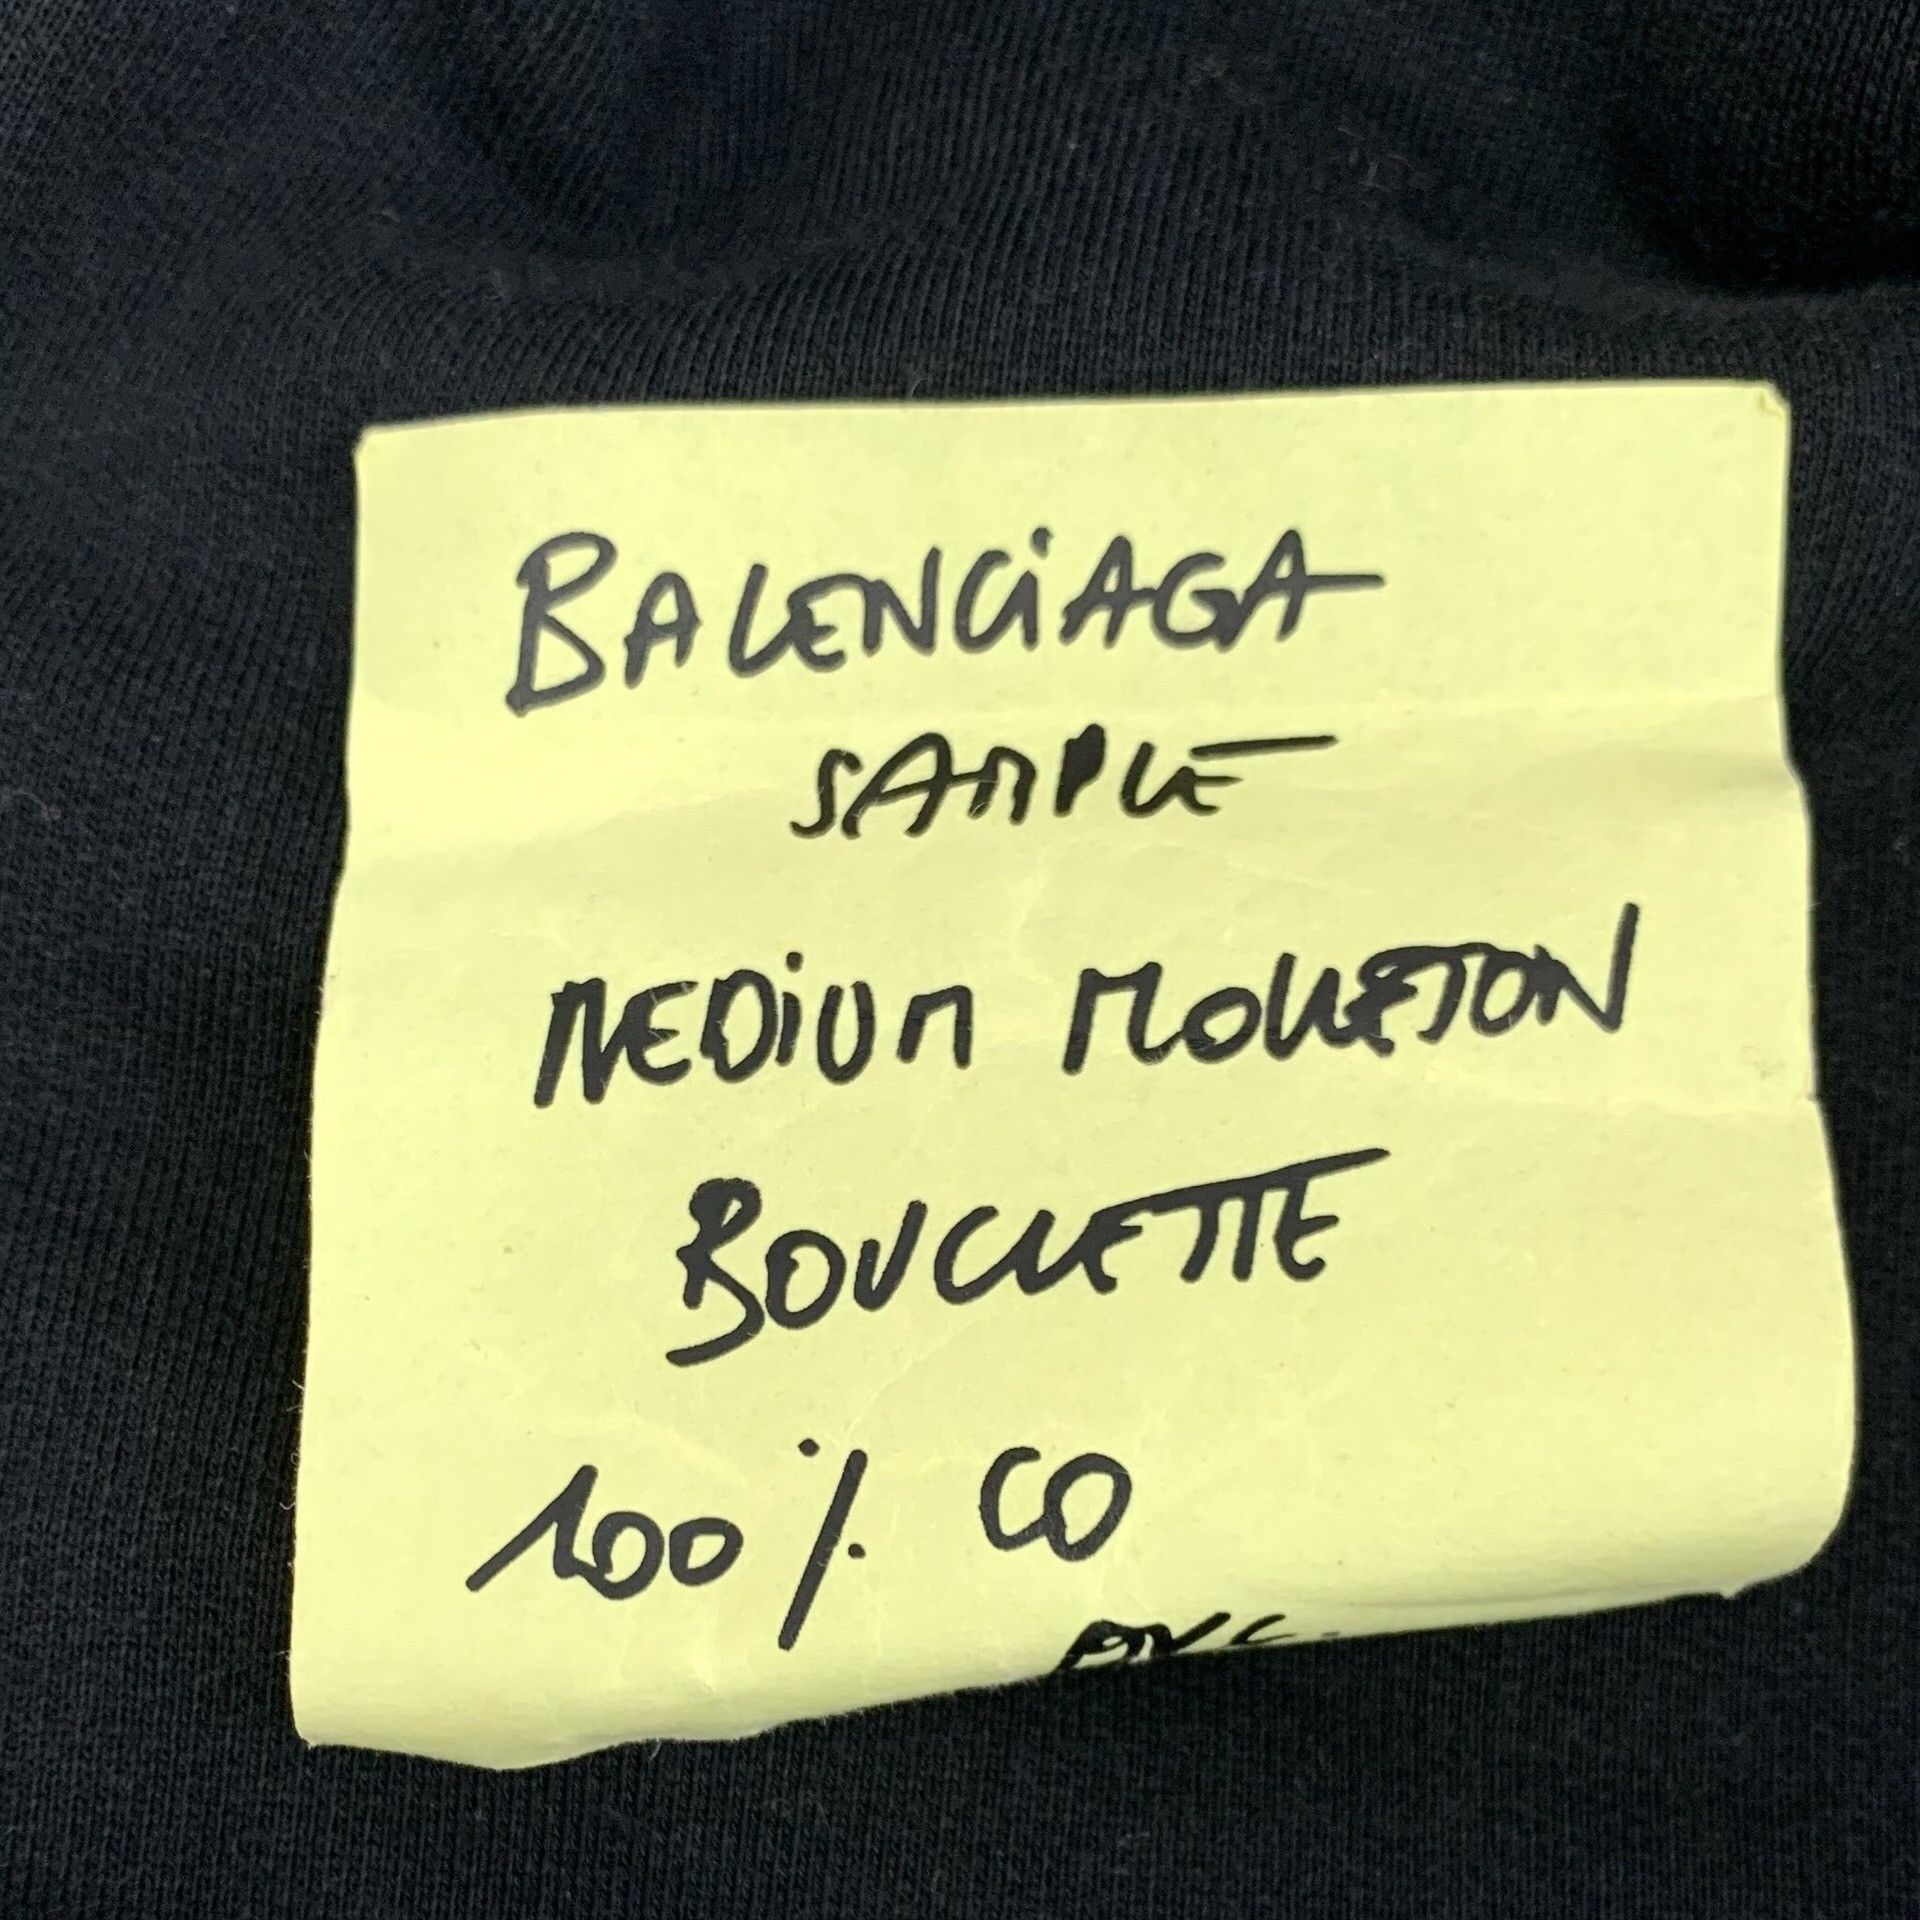 BALENCiAGA
SAMPLE
MEDiUM MOLLETON
BOUCLETTE
100 % CO